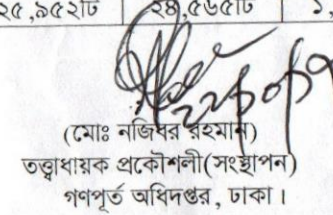 ২৫,৯৫২টি ২৪,৫৬৫টি ১,
(মোঃ নজিবর রহমান)
তত্ত্বাধায়ক প্রকৌশলী(সংস্থাপন)
গণপূর্ত অধিদপ্তর, ঢাকা।